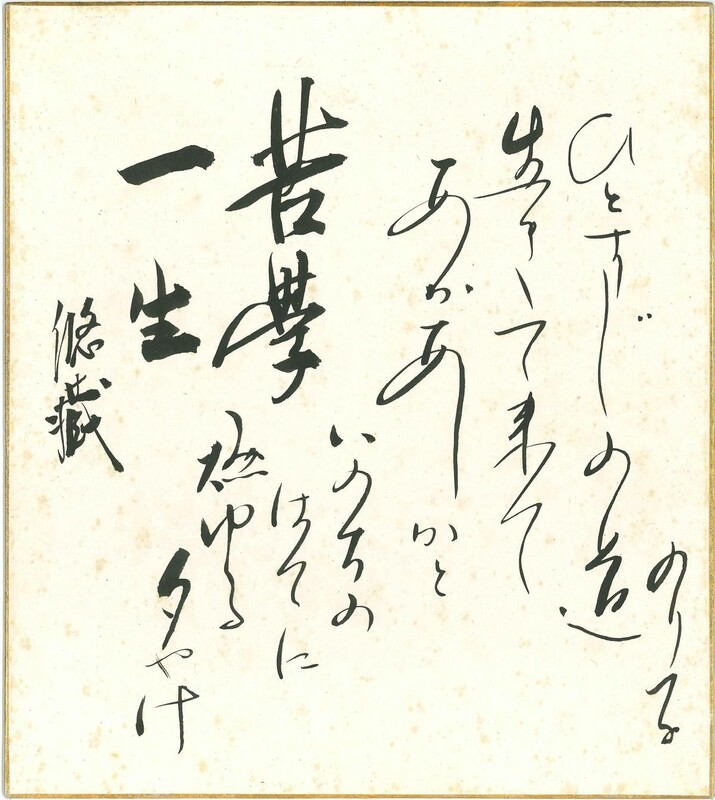 ひとすじの道
生き〱て来て
あかあかと
いのちの
はてに
燃ゆる
夕やけ
のり子
苦學
一生
悠蔵